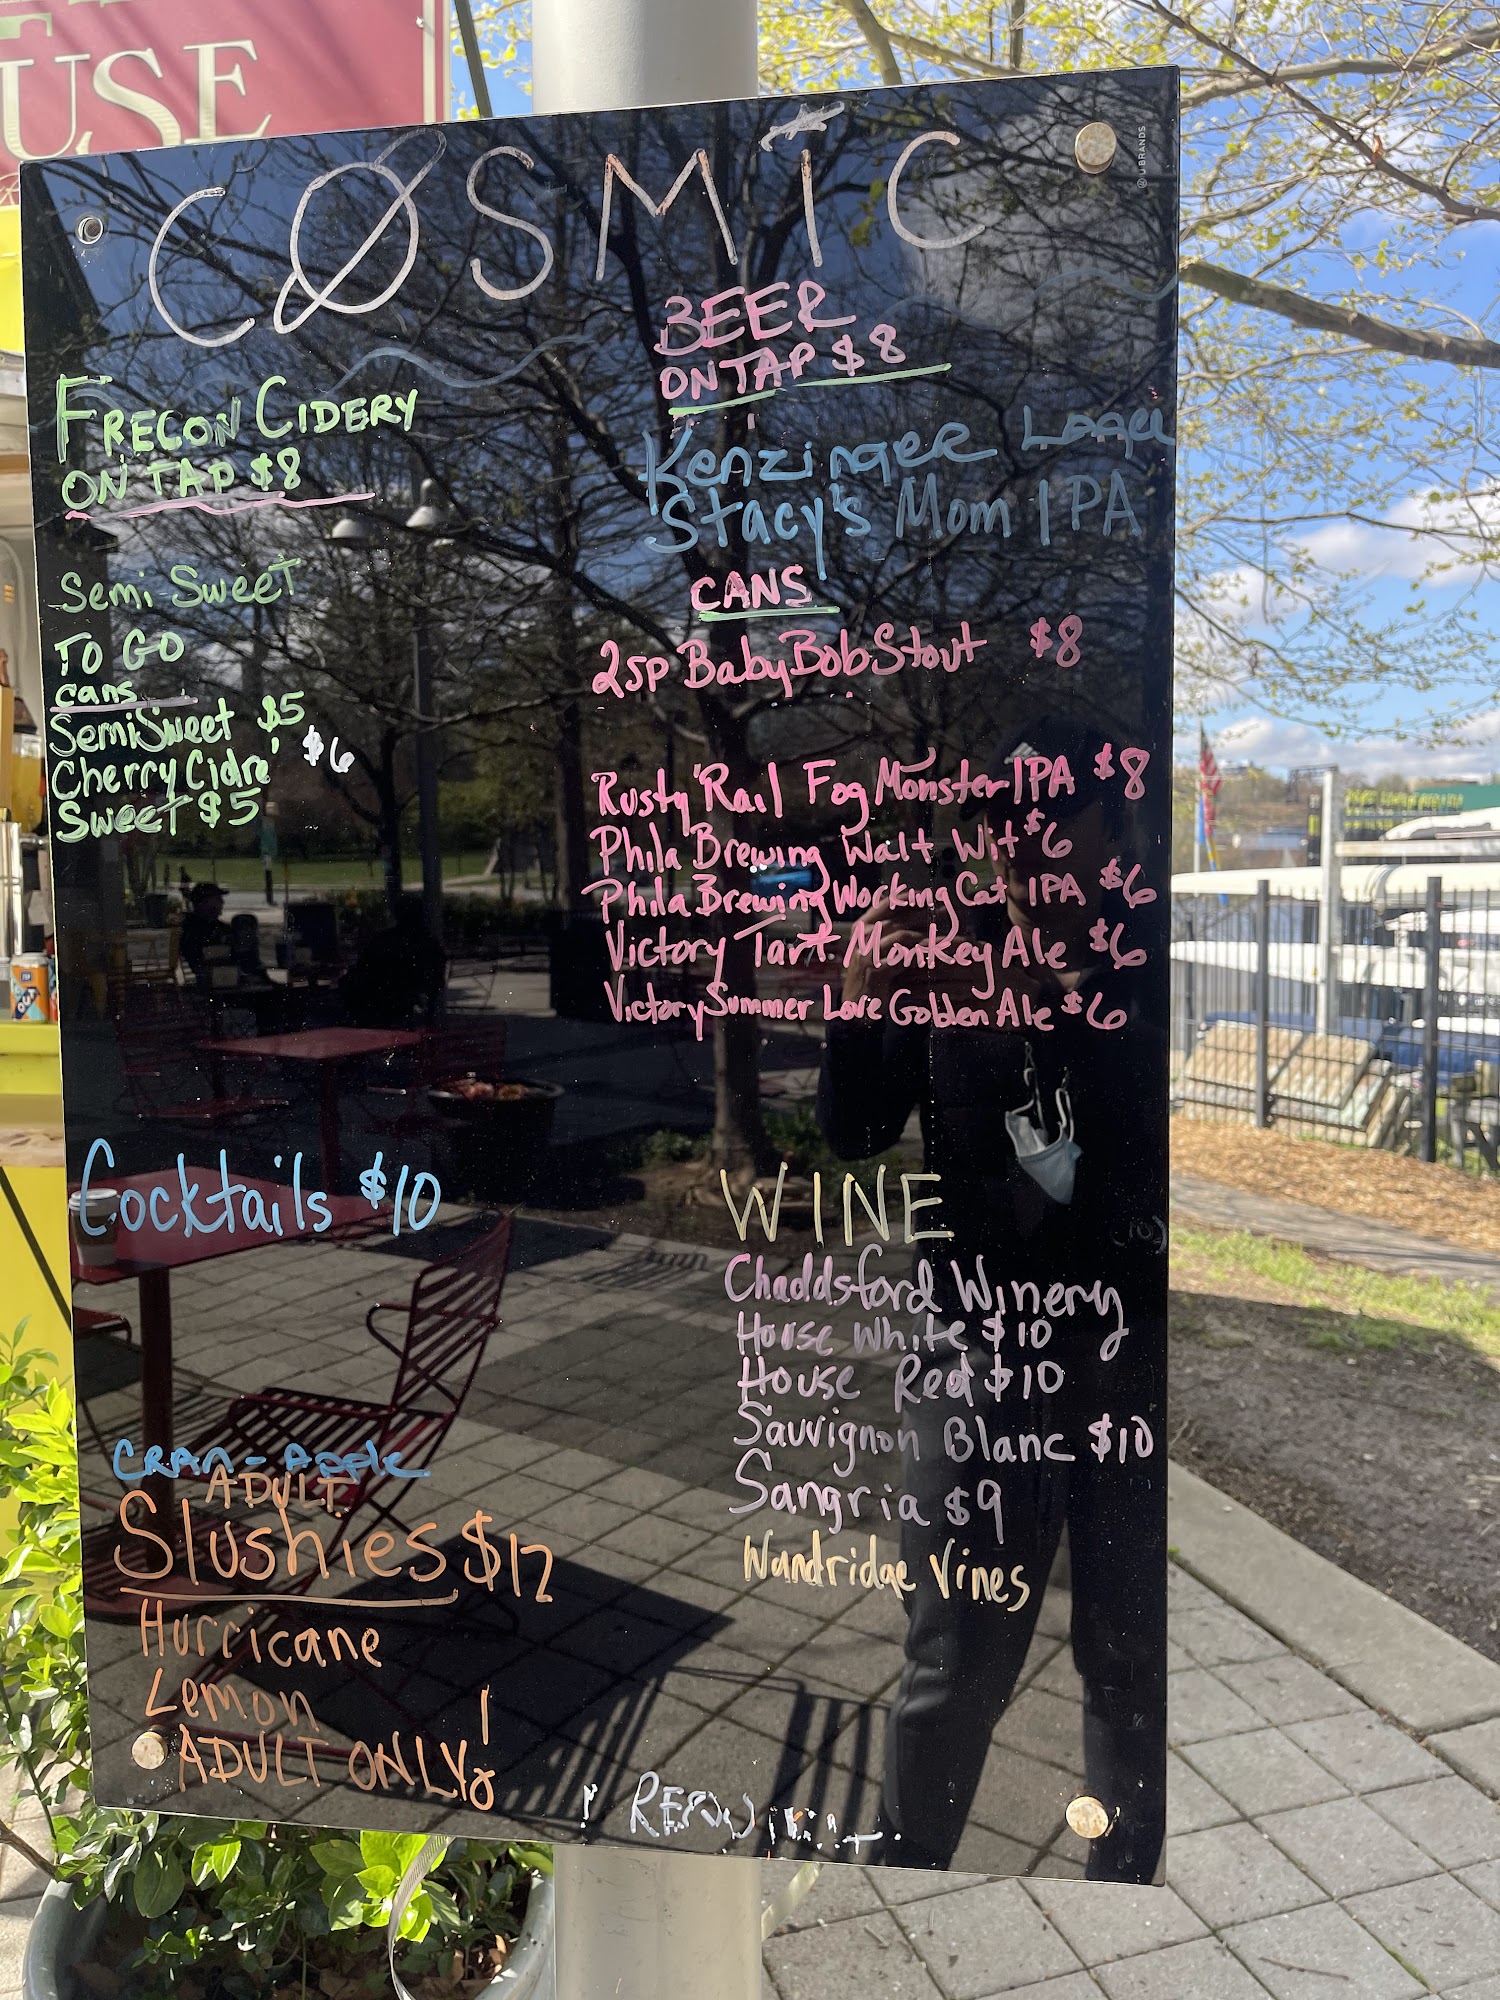 USE
U BRANDS
COSMIC
FRECON CIDERY
ON TAP $8
Semi Sweet
TO GO
cans
SemiSweet $5
Cherry Cidre' $6
Sweet $5
BEER
ON TAP $8
Kenzinger Lager
Stacy's Mom IPA
CANS
2sp Baby Bob Stout $8
Rusty Rail Fog Monster IPA $8
Phila Brewing Walt Wit $6
Phila Brewing Working Cat IPA $6
Victory Tart Monkey Ale $6
Victory Summer Love Golden Ale $6
Cocktails $10
CRAN-Apple
ADULT
Slushies $12
Hurricane
Lemon
ADULT ONLY!
WINE
Chaddsford Winery
House White $10
House Red $10
Sauvignon Blanc $10
Sangria $9
Wandridge Vines